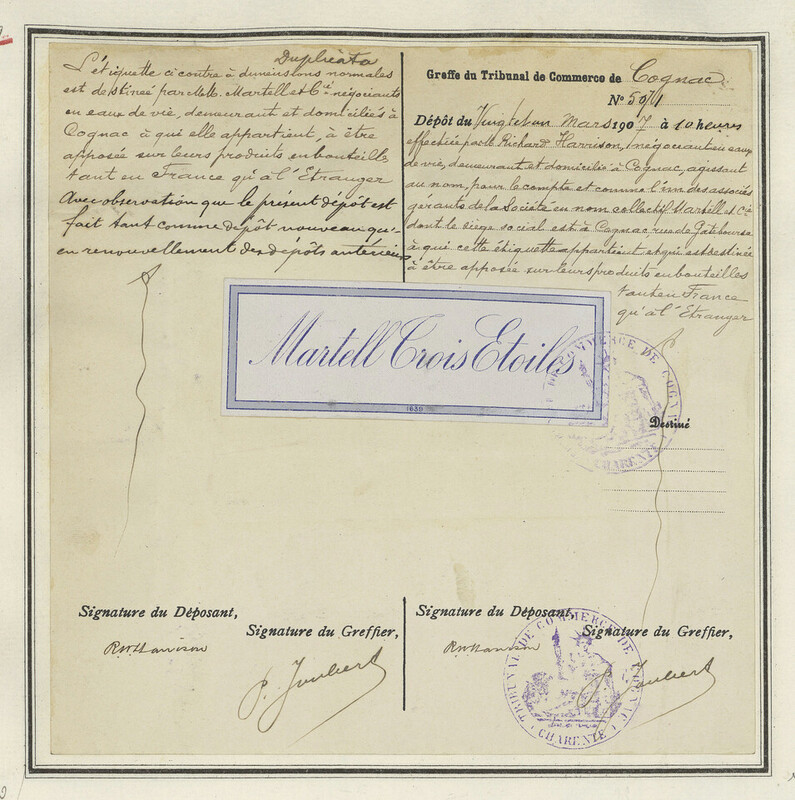 Duplicata
L'étiquette ci contre à dimensions normales
est destinée par M.M. Martell et Cie négociants
en eaux de vie, demeurant et domiciliés à
Cognac à qui elle appartient, à être
apposée sur leurs produits en bouteilles
tant en France qu'à l'Etranger
Avec observation que le présent dépôt est
fait tant comme dépôt nouveau qu'-
en renouvellement des dépôts antérieurs
Greffe du Tribunal de Commerce de Cognac
Nº
Dépôt du Vingt et un Mars 1907 à 10 heures
effectué par Mr Richard Harrison, négociant en eaux
de vie, demeurant et domicilié à Cognac, agissant
au nom, pour le compte et comme l'un des associés
gérants de la Société en nom collectif Martell et Cie
dont le siège social est à Cognac rue de Gatebourse
à qui cette étiquette appartient et qui est destinée
à être apposée sur leurs produits en bouteilles
tant en France
qu'à l'Etranger
Martell Trois Etoiles
1630
DE COMMERCE DE COGNAC
CHARENTE
Destiné
Signature du Déposant,
Signature du Greffier,
RMHarrison
P. Joubert
Signature du Déposant,
Signature du Greffier,
RMHarrison
P. Joubert
TRIBUNAL DE COMMERCE DE COGNAC
CHARENTE